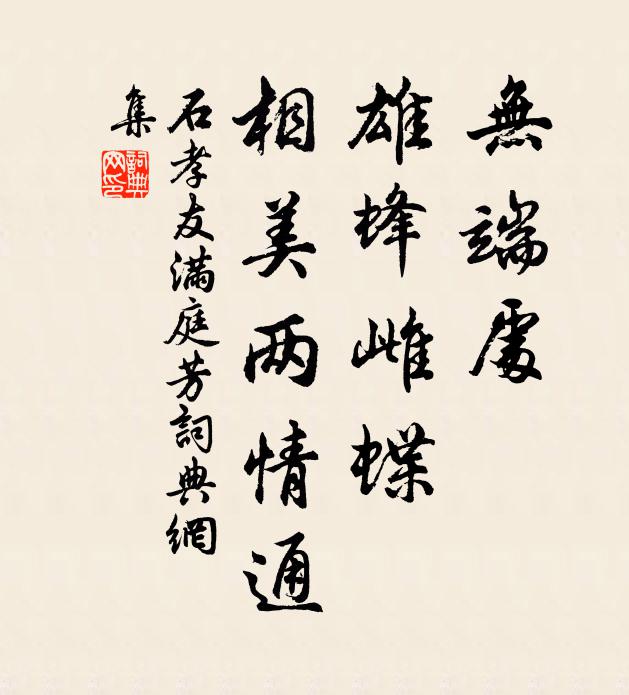 無端處
雄蜂雌蝶
相美两情通
石孝友滿庭芳詞典網
集
詞典
网印